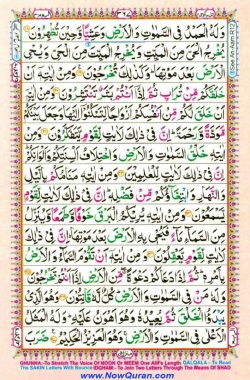 وَلَهُ الْحَمْدُ فِي السَّمٰوٰتِ وَالْاَرْضِ وَعَشِيًّا وَّحِيْنَ تُظْهِرُوْنَ
يُخْرِجُ الْحَيَّ مِنَ الْمَيِّتِ وَيُخْرِجُ الْمَيِّتَ مِنَ الْحَيِّ وَيُحْيِ
الْاَرْضَ بَعْدَ مَوْتِهَا وَكَذٰلِكَ تُخْرَجُوْنَ وَمِنْ اٰيٰتِهٖۤ اَنْ
خَلَقَكُمْ مِّنْ تُرَابٍ ثُمَّ اِذَاۤ اَنْتُمْ بَشَرٌ تَنْتَشِرُوْنَ وَمِنْ اٰيٰتِهٖۤ اَنْ
خَلَقَ لَكُمْ مِّنْ اَنْفُسِكُمْ اَزْوَاجًا لِّتَسْكُنُوْۤا اِلَيْهَا وَجَعَلَ بَيْنَكُمْ
مَّوَدَّةً وَّرَحْمَةً اِنَّ فِيْ ذٰلِكَ لَاٰيٰتٍ لِّقَوْمٍ يَّتَفَكَّرُوْنَ وَمِنْ
اٰيٰتِهٖ خَلْقُ السَّمٰوٰتِ وَالْاَرْضِ وَاخْتِلَافُ اَلْسِنَتِكُمْ وَاَلْوَانِكُمْ
اِنَّ فِيْ ذٰلِكَ لَاٰيٰتٍ لِّلْعٰلِمِيْنَ وَمِنْ اٰيٰتِهٖ مَنَامُكُمْ بِالَّيْلِ
وَالنَّهَارِ وَابْتِغَآؤُكُمْ مِّنْ فَضْلِهٖ اِنَّ فِيْ ذٰلِكَ لَاٰيٰتٍ لِّقَوْمٍ
يَّسْمَعُوْنَ وَمِنْ اٰيٰتِهٖ يُرِيْكُمُ الْبَرْقَ خَوْفًا وَّطَمَعًا وَّيُنَزِّلُ
مِنَ السَّمَآءِ مَآءً فَيُحْيٖ بِهِ الْاَرْضَ بَعْدَ مَوْتِهَا اِنَّ فِيْ ذٰلِكَ
لَاٰيٰتٍ لِّقَوْمٍ يَّعْقِلُوْنَ وَمِنْ اٰيٰتِهٖۤ اَنْ تَقُوْمَ السَّمَآءُ وَالْاَرْضُ
بِاَمْرِهٖ ثُمَّ اِذَا دَعَاكُمْ دَعْوَةً مِّنَ الْاَرْضِ اِذَاۤ اَنْتُمْ تَخْرُجُوْنَ
وَلَهٗ مَنْ فِي السَّمٰوٰتِ وَالْاَرْضِ كُلٌّ لَّهٗ قٰنِتُوْنَ وَهُوَ الَّذِيْ
يَبْدَؤُا الْخَلْقَ ثُمَّ يُعِيْدُهٗ وَهُوَ اَهْوَنُ عَلَيْهِ وَلَهُ الْمَثَلُ
الْاَعْلٰى فِي السَّمٰوٰتِ وَالْاَرْضِ وَهُوَ الْعَزِيْزُ الْحَكِيْمُ ضَرَبَ
GHUNNA:-To Stretch The Voice Of NOON Or MEEM One Alif's Length QALQALA - To Read
The SAKIN Letters With Bounce IDGHAM:- To Join Two Letters Through The Means Of SHAD
www.NowQuran.com